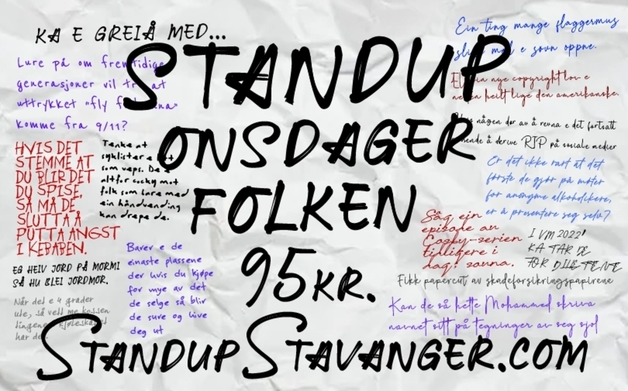 KA E GREIÅ MED...
Lure på om fremtidige
generasjoner vil tro at
uttrykket «fly
komme fra 9/11?
HVIS DET
STEMME AT
DU BLIR DET
DU SPISE,
SÅ MÅ DE
SLUTTA Å
PUTTA ANGST
I KEBABEN.
Tenke at
syklister e
som veps. De e
altfor sucky mot
folk som bare med
ein håndvending
kan drepe de.
EG HEIV JORD PÅ MORMI
SÅ HU BLEI JORDMOR.
Når det e 4 grader
ute, så vell me kassen
lingen
har de
Barer e de
einaste plassene
der hvis du kjøpe
for mye av det
de selge så blir
de sure og live
deg ut
STANDUP
ONSDAGER
FOLKEN
95KR.
STANDUPSTAVANGER.COM
Ein ting mange flaggermus
slite med e søvn oppne.
nye copyrightlov e
nesten heilt lige den amerikanske.
någen dør av å
å skrive RIP på sosiale medier
Er det ikke rart at det
første de gjør på møter
for anonyme alkoholikere,
er å presentere seg selv?
Såg ein
episode av
Cosby-serien
tidligere i
dag.
I VM 2022!
KA TAR DE
FOR
Fikk papercut av skadeforsikringspapirene
Kan de så hette Mohammed skriva
navnet sitt på tegninger av seg sjøl